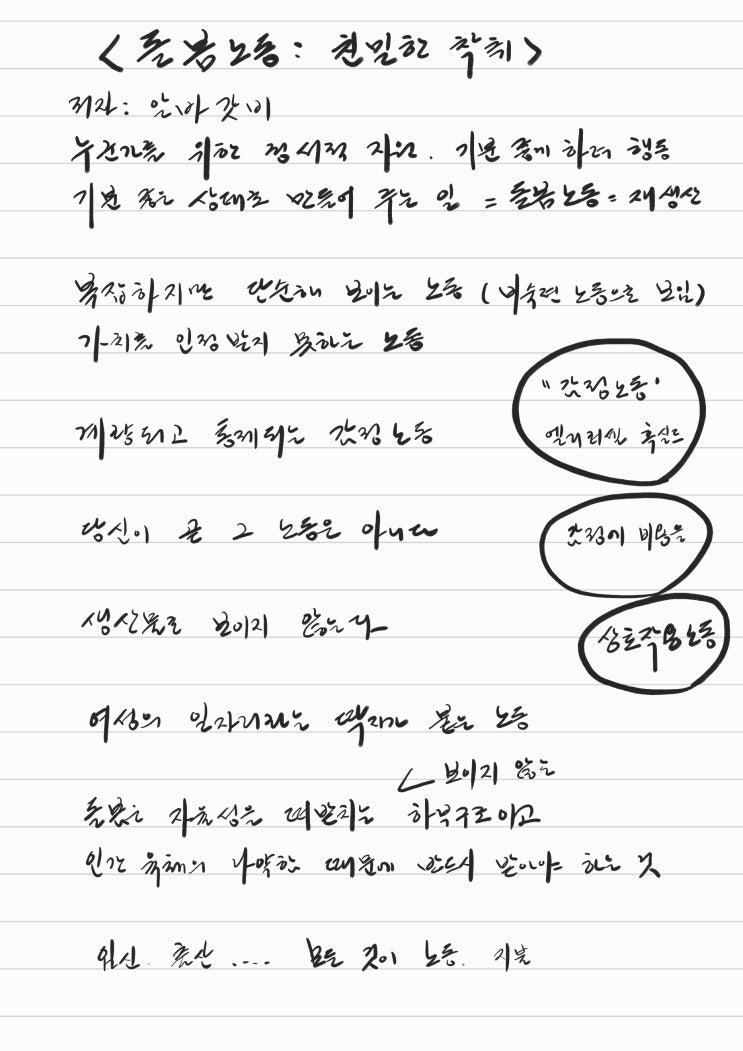 <돌봄노동: 친밀한 착취>
저자: 알바 갓비
누군가를 위한 정서적 지원. 기분 좋게 하려 행동
기분 좋은 상태로 만들어 주는 일 = 돌봄노동 = 재생산
복잡하지만 단순해 보이는 노동 (비숙련 노동으로 보임)
가치를 인정받지 못하는 노동
"감정노동"
앨리러셀 혹실드
계량되고 통제되는 감정노동
당신이 곧 그 노동은 아니다
감정에 비용을
생산물로 보이지 않는다
상호작용노동
여성의 일자리라는 딱지가 붙은 노동
보이지 않는
돌봄은 자율성을 떠받치는 하부구조이고
인간 육체의 나약함 때문에 반드시 받아야 하는 것
임신. 출산 .... 모든 것이 노동. 지불